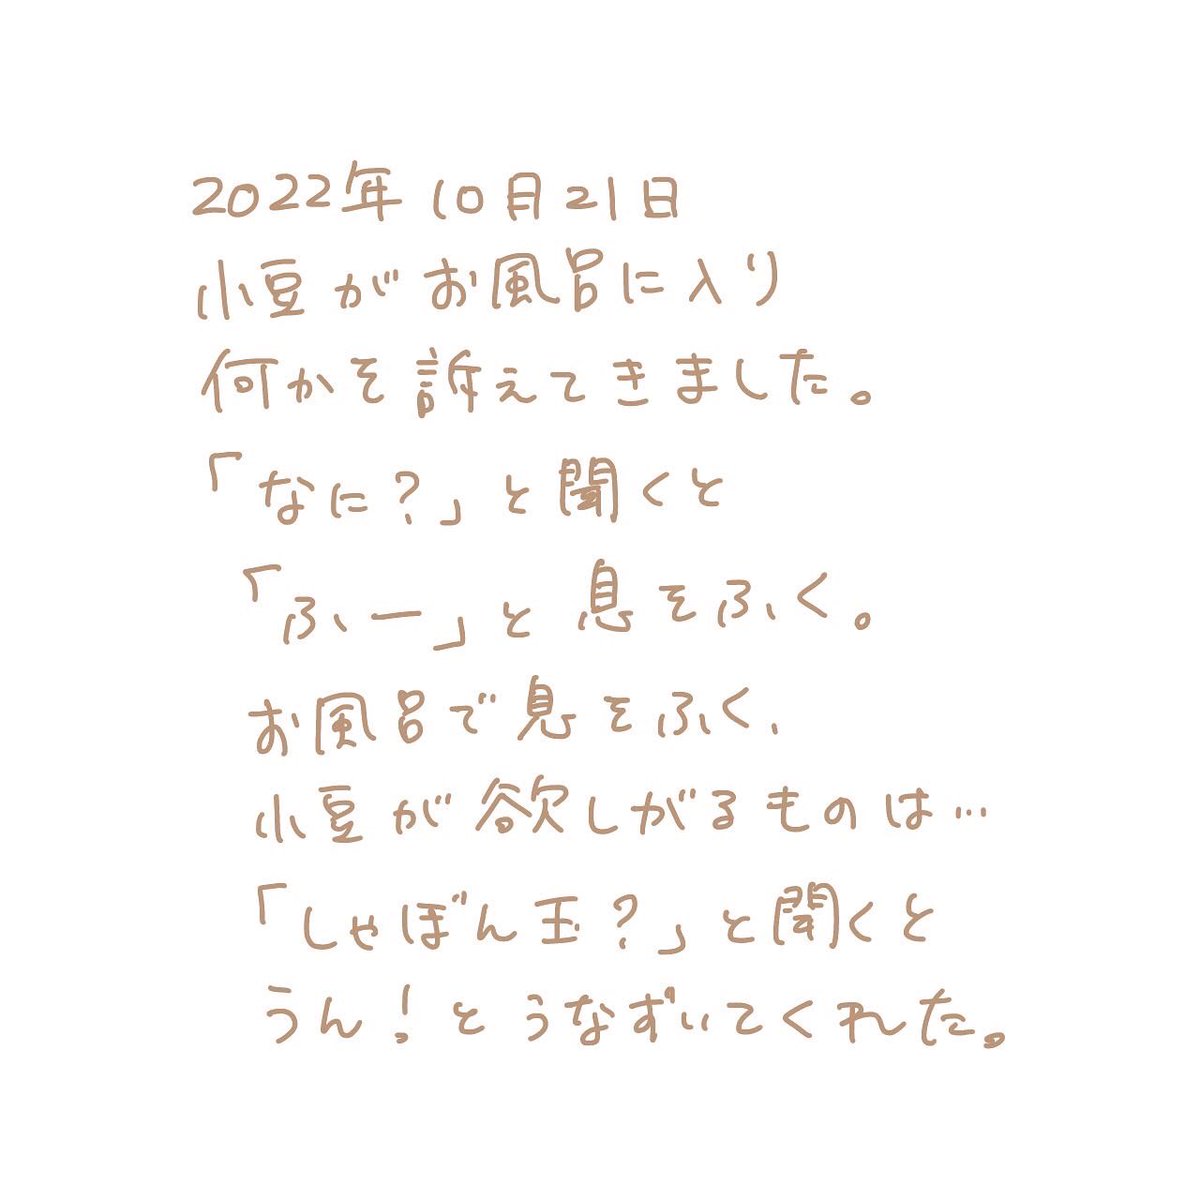 2022年10月21日
小豆がお風呂に入り
何かを訴えてきました。
「なに?」と聞くと
「ふー」と息をふく。
お風呂で息をふく、
小豆が欲しがるものは…
「しゃぼん玉?」と聞くと
うん!とうなずいてくれた。